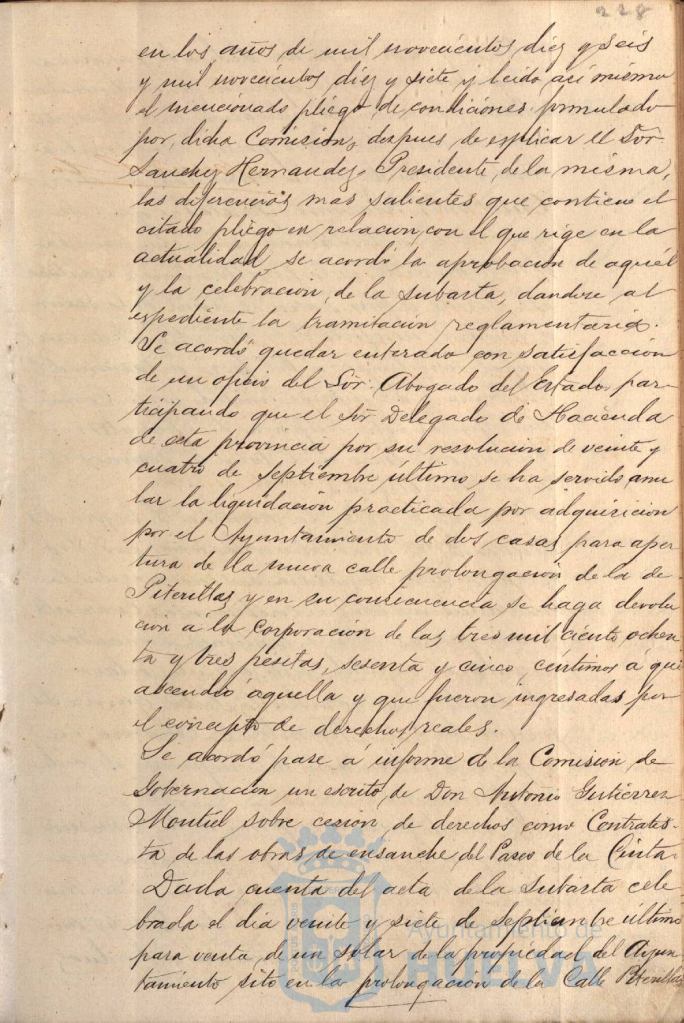 228
en los años de mil novecientos diez y seis
y mil novecientos diez y siete y leido, asi mismo
el mencionado pliego de condiciones formulado
por dicha Comisión, despues de esplicar el Sor
Sanchez Hernandez, Presidente de la misma,
las diferencias mas salientes que contiene el
citado pliego en relacion con el que rige en la
actualidad, se acordó la aprobacion de aquél
y la celebracion de la subasta, dandose al
espediente la tramitación reglamentaria.
Se acordó quedar enterado con satisfacción
de un oficio del Sór. Abogado del Estado par-
ticipando que el Sór Delegado de Hacienda
de esta provincia por su resolucion de veinte y
cuatro de Septiembre último se ha servido anu
lar la liquidación practicada por adquisicion
por el Ayuntamiento de dos casas para aper
tura de lla nueva calle prolongación de la de
Piterillas y en su consecuencia se haga devolu
cion á la Corporación de las tres mil ciento ochen
ta y tres pesetas, sesenta y cinco céntimos á que
ascendió aquella y que fueron ingresadas por
el concepto de derechos reales.
Se acordó pase á informe de la Comision de
Gobernacion un escrito de Don Antonio Gutiérrez
Montiel sobre cesion de derechos como Contratis-
ta de las obras de ensanche del Paseo de la Cinta.
Dada cuenta del acta de la subasta cele
brada el dia veinte y siete de Septiembre último
para venta de un solar de la propiedad del Ayun
tamiento sito en la prolongacion de la Calle Piterillas
Ayuntamiento de
HUELVA